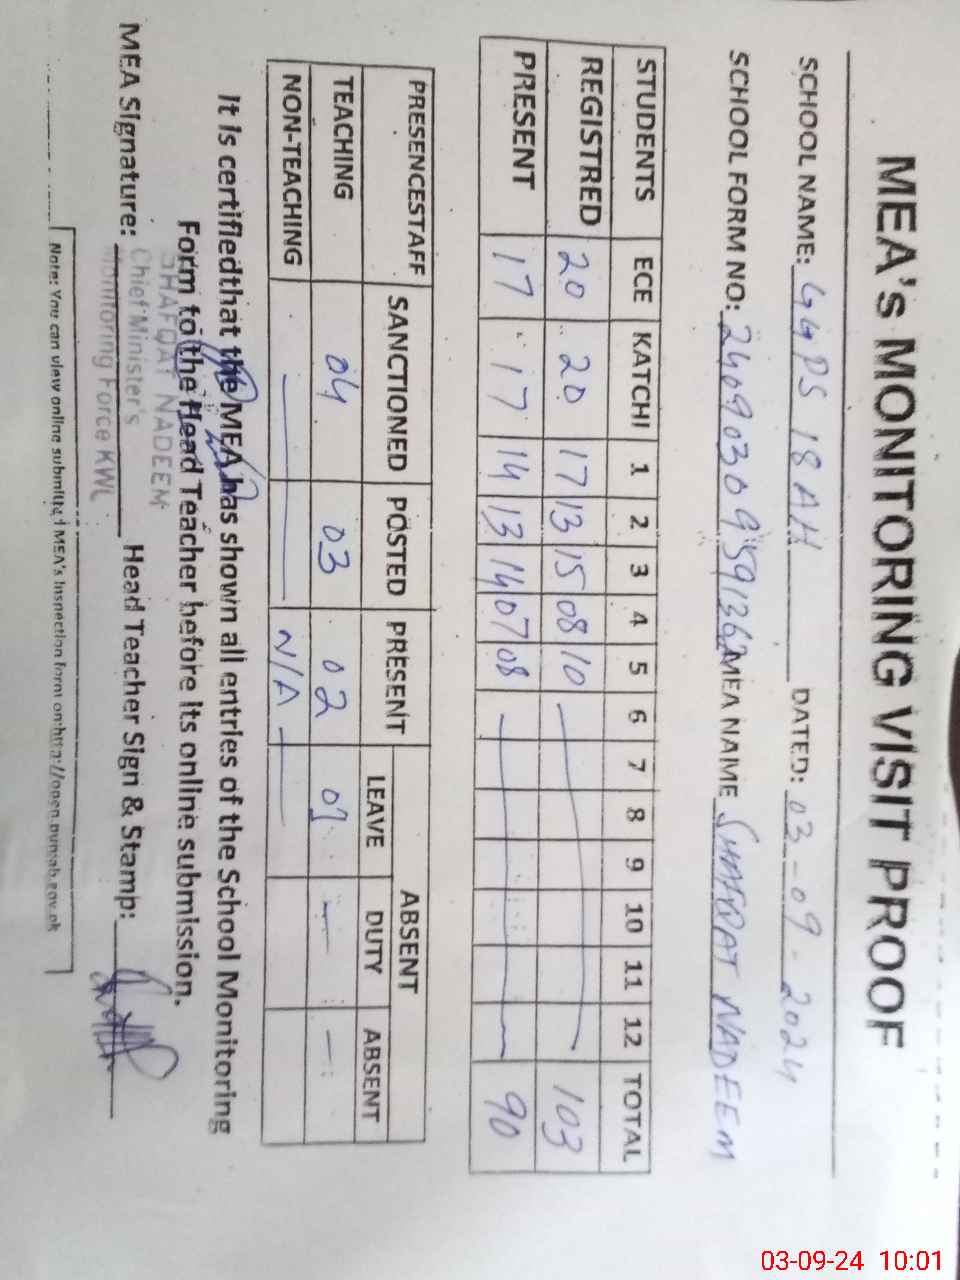 MEA's MONITORING VISIT PROOF
SCHOOL NAME: GGPS 18 AH DATED: 03-09-2024
SCHOOL FORM NO: MEA NAME SHAFQAT NADEEM
STUDENTS ECE KATCHI 1 2 3 4 5 6 7 8 9 10 11 12 TOTAL
REGISTRED 20 20 17 13 15 08 10 103
PRESENT 17 17 14 13 14 07 08 90
PRESENCESTAFF SANCTIONED POSTED PRESENT ABSENT
LEAVE DUTY ABSENT
TEACHING 04 03 02 01 — —
NON-TEACHING — — N/A —
It is certifiedthat the MEA has shown all entries of the School Monitoring
Form to the Head Teacher before its online submission.
SHAFQAT NADEEM
Chief Minister's
Monitoring Force KWL
MEA Signature: Head Teacher Sign & Stamp:
Note: You can view online submitted MEA's Inspection form on:http://open.punjab.gov.pk
03-09-24 10:01